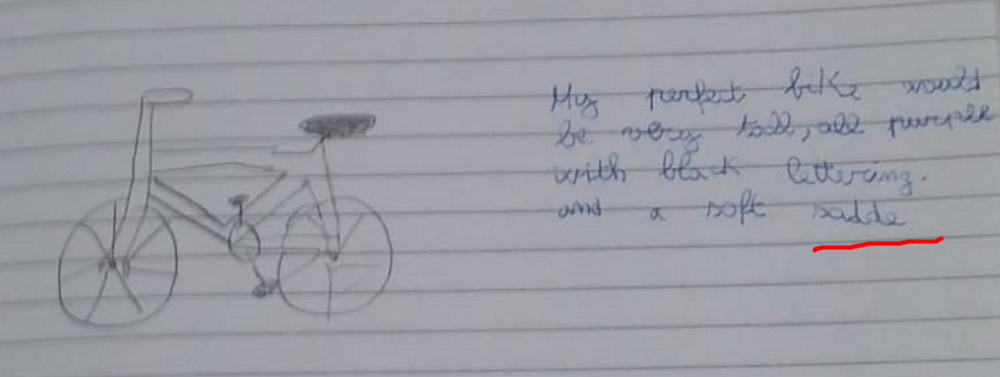 My perfect bike would
be very tall, all purple
with black lettering.
and a soft sadde